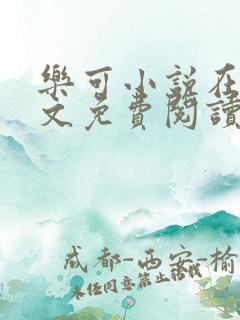 樂可小説在
文免費閱讀
成都-西安-榆
未经同意禁止转载